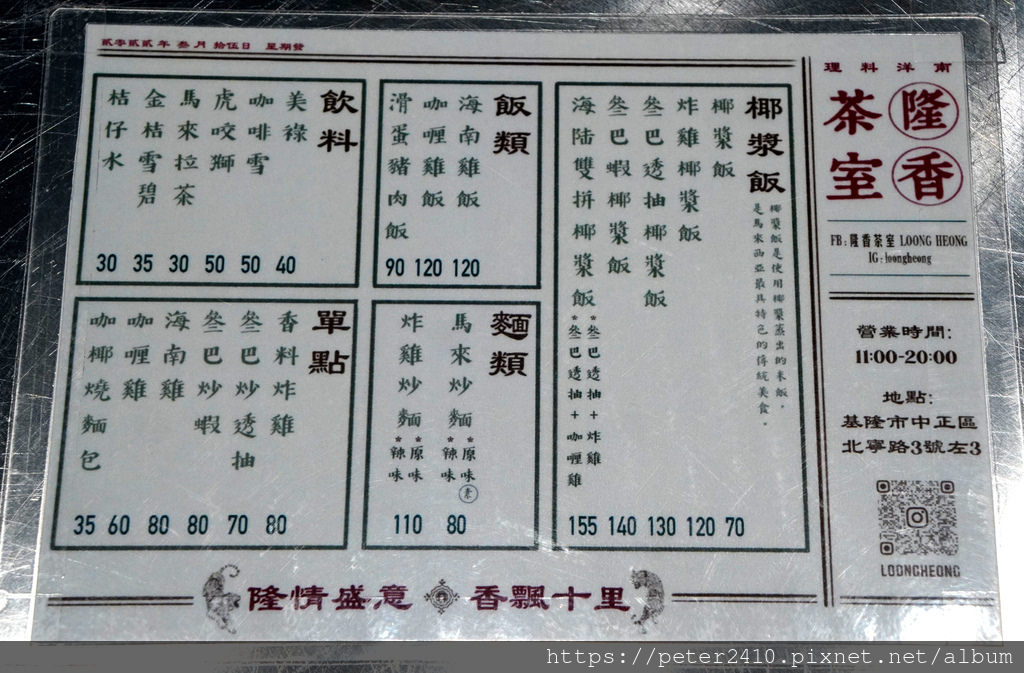 貳零貳貳年 叁月 拾伍日 星期發
南洋料理
隆香
茶室
FB : 隆香茶室 LOONG HEONG
IG : loongheong
營業時間:
11:00-20:00
地點:
基隆市中正區
北寧路3號左3
LOONGHEONG
椰漿飯
椰漿飯是使用椰漿蒸出的米飯，
是馬來西亞最具特色的傳統美食。
椰漿飯
炸雞椰漿飯
叁巴透抽椰漿飯
叁巴蝦椰漿飯
海陸雙拼椰漿飯
*叁巴透抽+炸雞
*叁巴透抽+咖喱雞
155 140 130 120 70
飯類
海南雞飯
咖喱雞飯
滑蛋豬肉飯
90 120 120
飲料
美祿
咖啡雪
虎咬獅
馬來拉茶
金桔雪碧
桔仔水
30 35 30 50 50 40
麵類
馬來炒麵
*原味
素
*辣味
炸雞炒麵
*原味
*辣味
110 80
單點
香料炸雞
叁巴炒透抽
叁巴炒蝦
海南雞
咖喱雞
咖椰燒麵包
35 60 80 80 70 80
隆情盛意 香飄十里
https://peter2410.pixnet.net/album